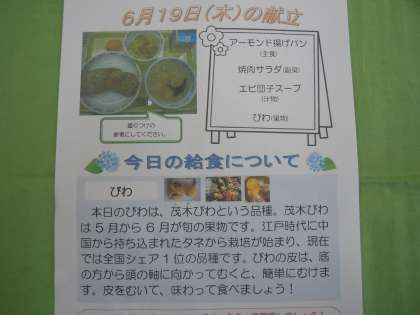 6月19日(木)の献立
アーモンド揚げパン
(主食)
焼肉サラダ(副菜)
エビ団子スープ
(汁物)
びわ(果物)
盛りつけの
参考にしてください。
今日の給食について
びわ
本日のびわは、茂木びわという品種。茂木びわ
は5月から6月が旬の果物です。江戸時代に中
国から持ち込まれたタネから栽培が始まり、現在
では全国シェア1位の品種です。びわの皮は、底
の方から頭の軸に向かってむくと、簡単にむけま
す。皮をむいて、味わって食べましょう!